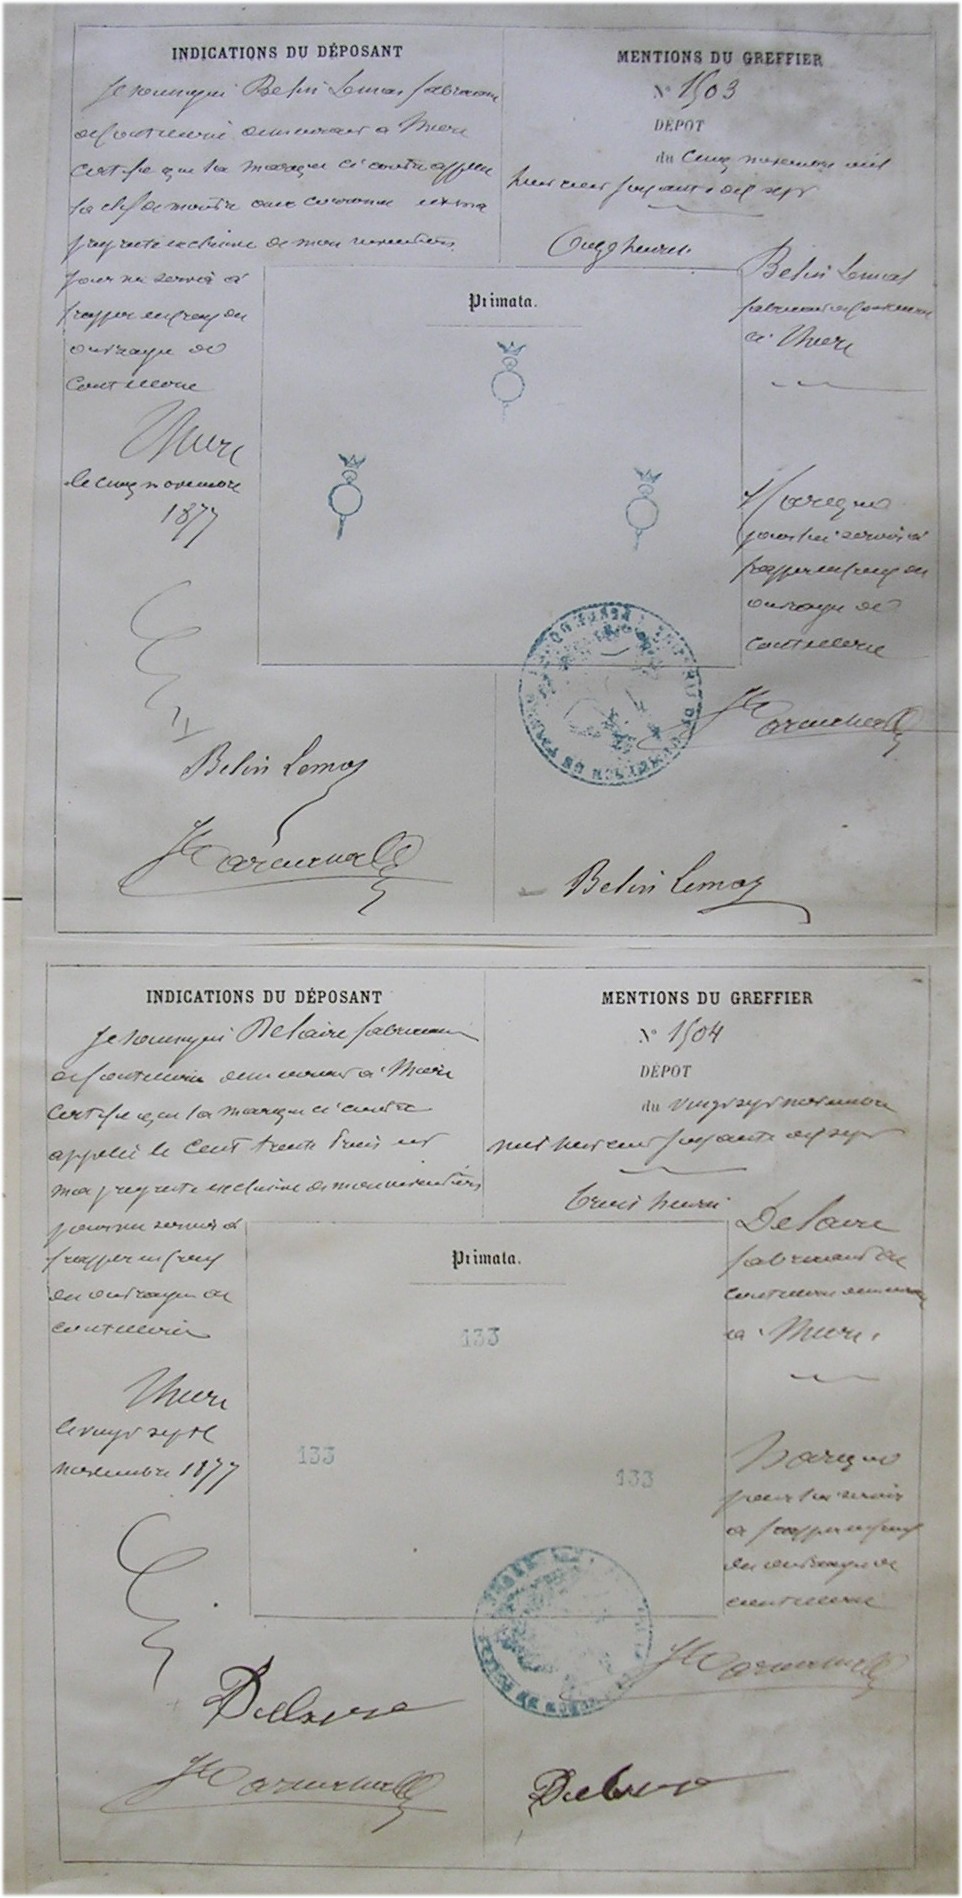 INDICATIONS DU DÉPOSANT
Je soussigné Belin Lemas fabricant
de coutellerie demeurant à Thiers
certifie que la marque ci contre appelée
la clef de montre avec couronne est ma
propriété exclusive de mon
pour me servir à
frapper
ouvrages de
coutellerie
Thiers
le cinq novembre
1877
Belin Lemas
MENTIONS DU GREFFIER
N° 1503
DÉPOT
du cinq novembre mil
huit cent soixante dix sept
Onze heures
Belin Lemas
fabricant de coutellerie
à Thiers
Primata.
Marque
pour lui servir à
frapper
ouvrages de
coutellerie
Belin Lemas
INDICATIONS DU DÉPOSANT
Je soussigné Delaire fabricant
de coutellerie demeurant à Thiers
certifie que la marque ci contre
appelée le Cent trente trois est
ma propriété exclusive de mon
pour me servir à
frapper
ouvrages de
coutellerie
Thiers
le vingt sept
novembre 1877
Delaire
MENTIONS DU GREFFIER
N° 1504
DÉPOT
du vingt sept novembre
mil huit cent soixante dix sept
trois heures
Delaire
fabricant de
coutellerie demeurant
à Thiers
Primata.
133
133
133
Marque
pour lui servir
à frapper
ouvrages de
coutellerie
Delaire